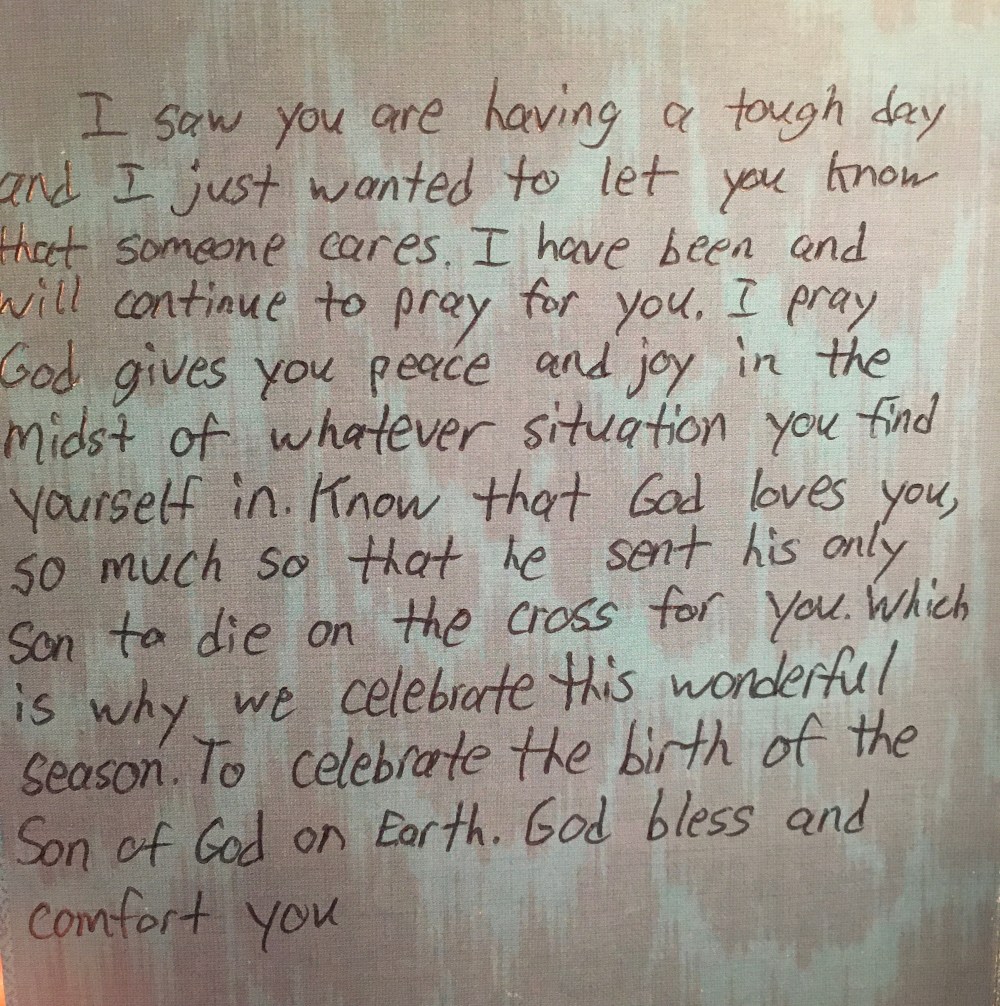 I saw you are having a tough day
and I just wanted to let you know
that someone cares. I have been and
will continue to pray for you. I pray
God gives you peace and joy in the
midst of whatever situation you find
yourself in. Know that God loves you,
so much so that he sent his only
son to die on the cross for you. Which
is why we celebrate this wonderful
season. To celebrate the birth of the
Son of God on Earth. God bless and
comfort you